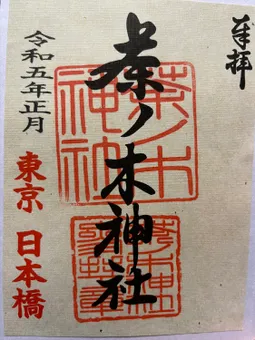 奉拝
茶ノ木神社
令和五年正月
東京 日本橋
茶ノ木神社